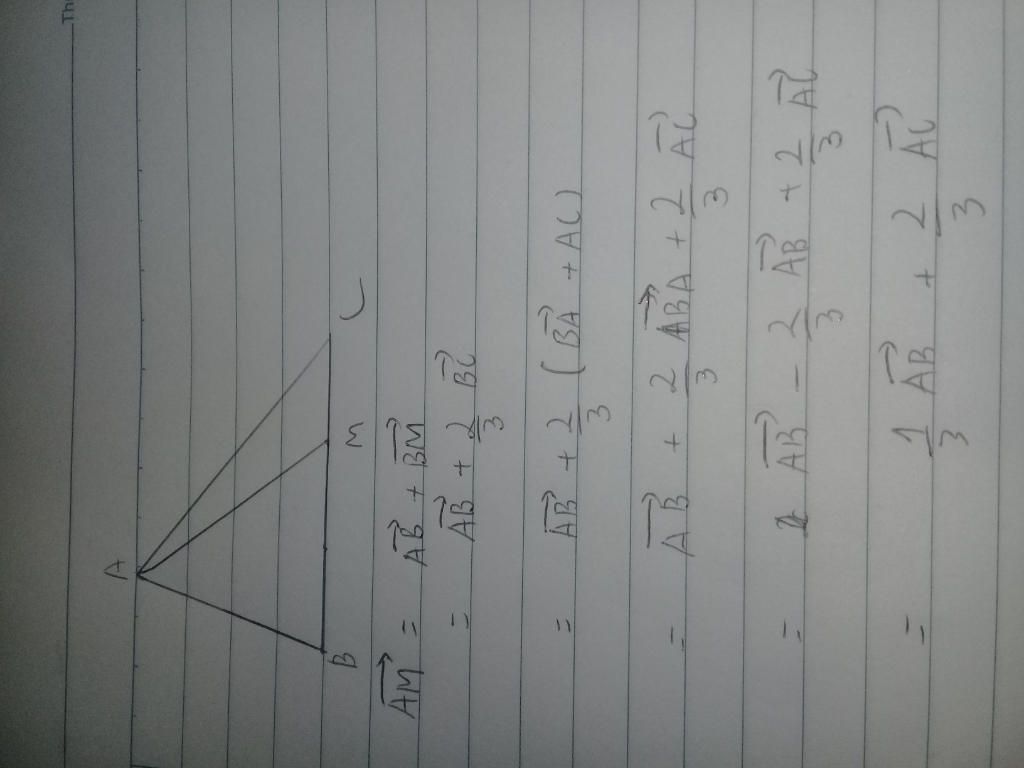 A
B
M
C
\overrightarrow{AM} = \overrightarrow{AB} + \overrightarrow{BM}
= \overrightarrow{AB} + \frac{2}{3} \overrightarrow{BC}
= \overrightarrow{AB} + \frac{2}{3} ( \overrightarrow{BA} + AC )
= \overrightarrow{AB} + \frac{2}{3} \overrightarrow{ABA} + \frac{2}{3} \overrightarrow{AC}
= \overrightarrow{AB} - \frac{2}{3} \overrightarrow{AB} + \frac{2}{3} \overrightarrow{AC}
= \frac{1}{3} \overrightarrow{AB} + \frac{2}{3} \overrightarrow{AC}